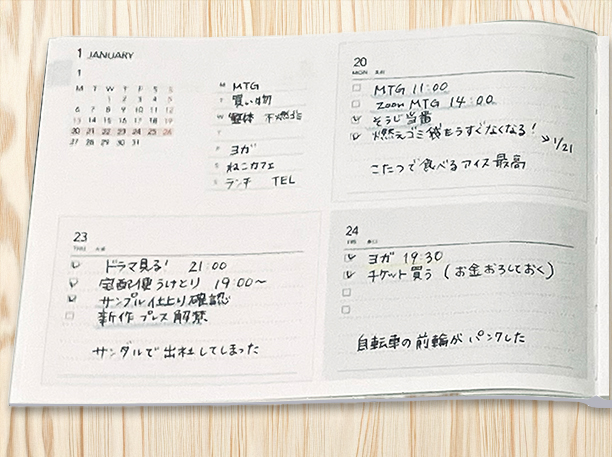 1 JANUARY
1
M T W T F S S
1 2 3 4 5
6 7 8 9 10 11 12
13 14 15 16 17 18 19
20 21 22 23 24 25 26
27 28 29 30 31
M MTG
T 買い物
W 不燃ゴミ
T
F ヨガ
S ねこカフェ
S ランチ TEL
20
MON
MTG 11:00
Zoom MTG 14:00
そうじ当番
燃えゴミ袋もうすぐなくなる!
→1/21
こたつで食べるアイス最高
23
THU
ドラマ見る! 21:00
宅配便うけとり 19:00〜
サンプル仕上り確認
新作プレス解禁
サンダルで出社してしまった
24
FRI
ヨガ 19:30
チケット買う (お金おろしておく)
自転車の前輪がパンクした